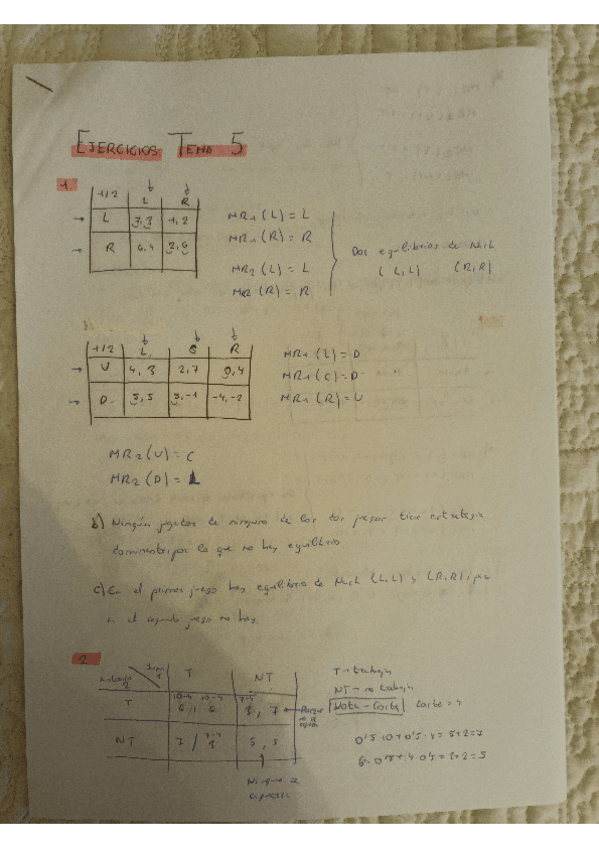 EJERCICIOS TEMA 5
1.
1/2 L R
L 7,3 1,2
R 6,4 2,6
MR1 (L) = L
MR1 (R) = R
MR2 (L) = L
MR2 (R) = R
Dos equilibrios de Nash
(L,L) (R,R)
1/2 L C R
U 4, 3 2,7 0,4
D 5,5 5,-1 -4,-2
MR1 (L) = D
MR1 (C) = D
MR1 (R) = U
MR2 (U) = C
MR2 (D) = L
b) Ningún jugador de ninguno de los dos juegos tiene estrategia
dominante por lo que no hay equilibrio
c) En el primer juego hay equilibrio de Nash (L,L) y (R,R)
en el segundo juego no hay.
2
T NT
T 10-4 10-4
6, 6 3, 7
NT 7 / 3 5, 5
T → trabaja
NT → no trabaja
Nota - Coste Coste = 4
0'5·10+0'5·4 = 5+2=7